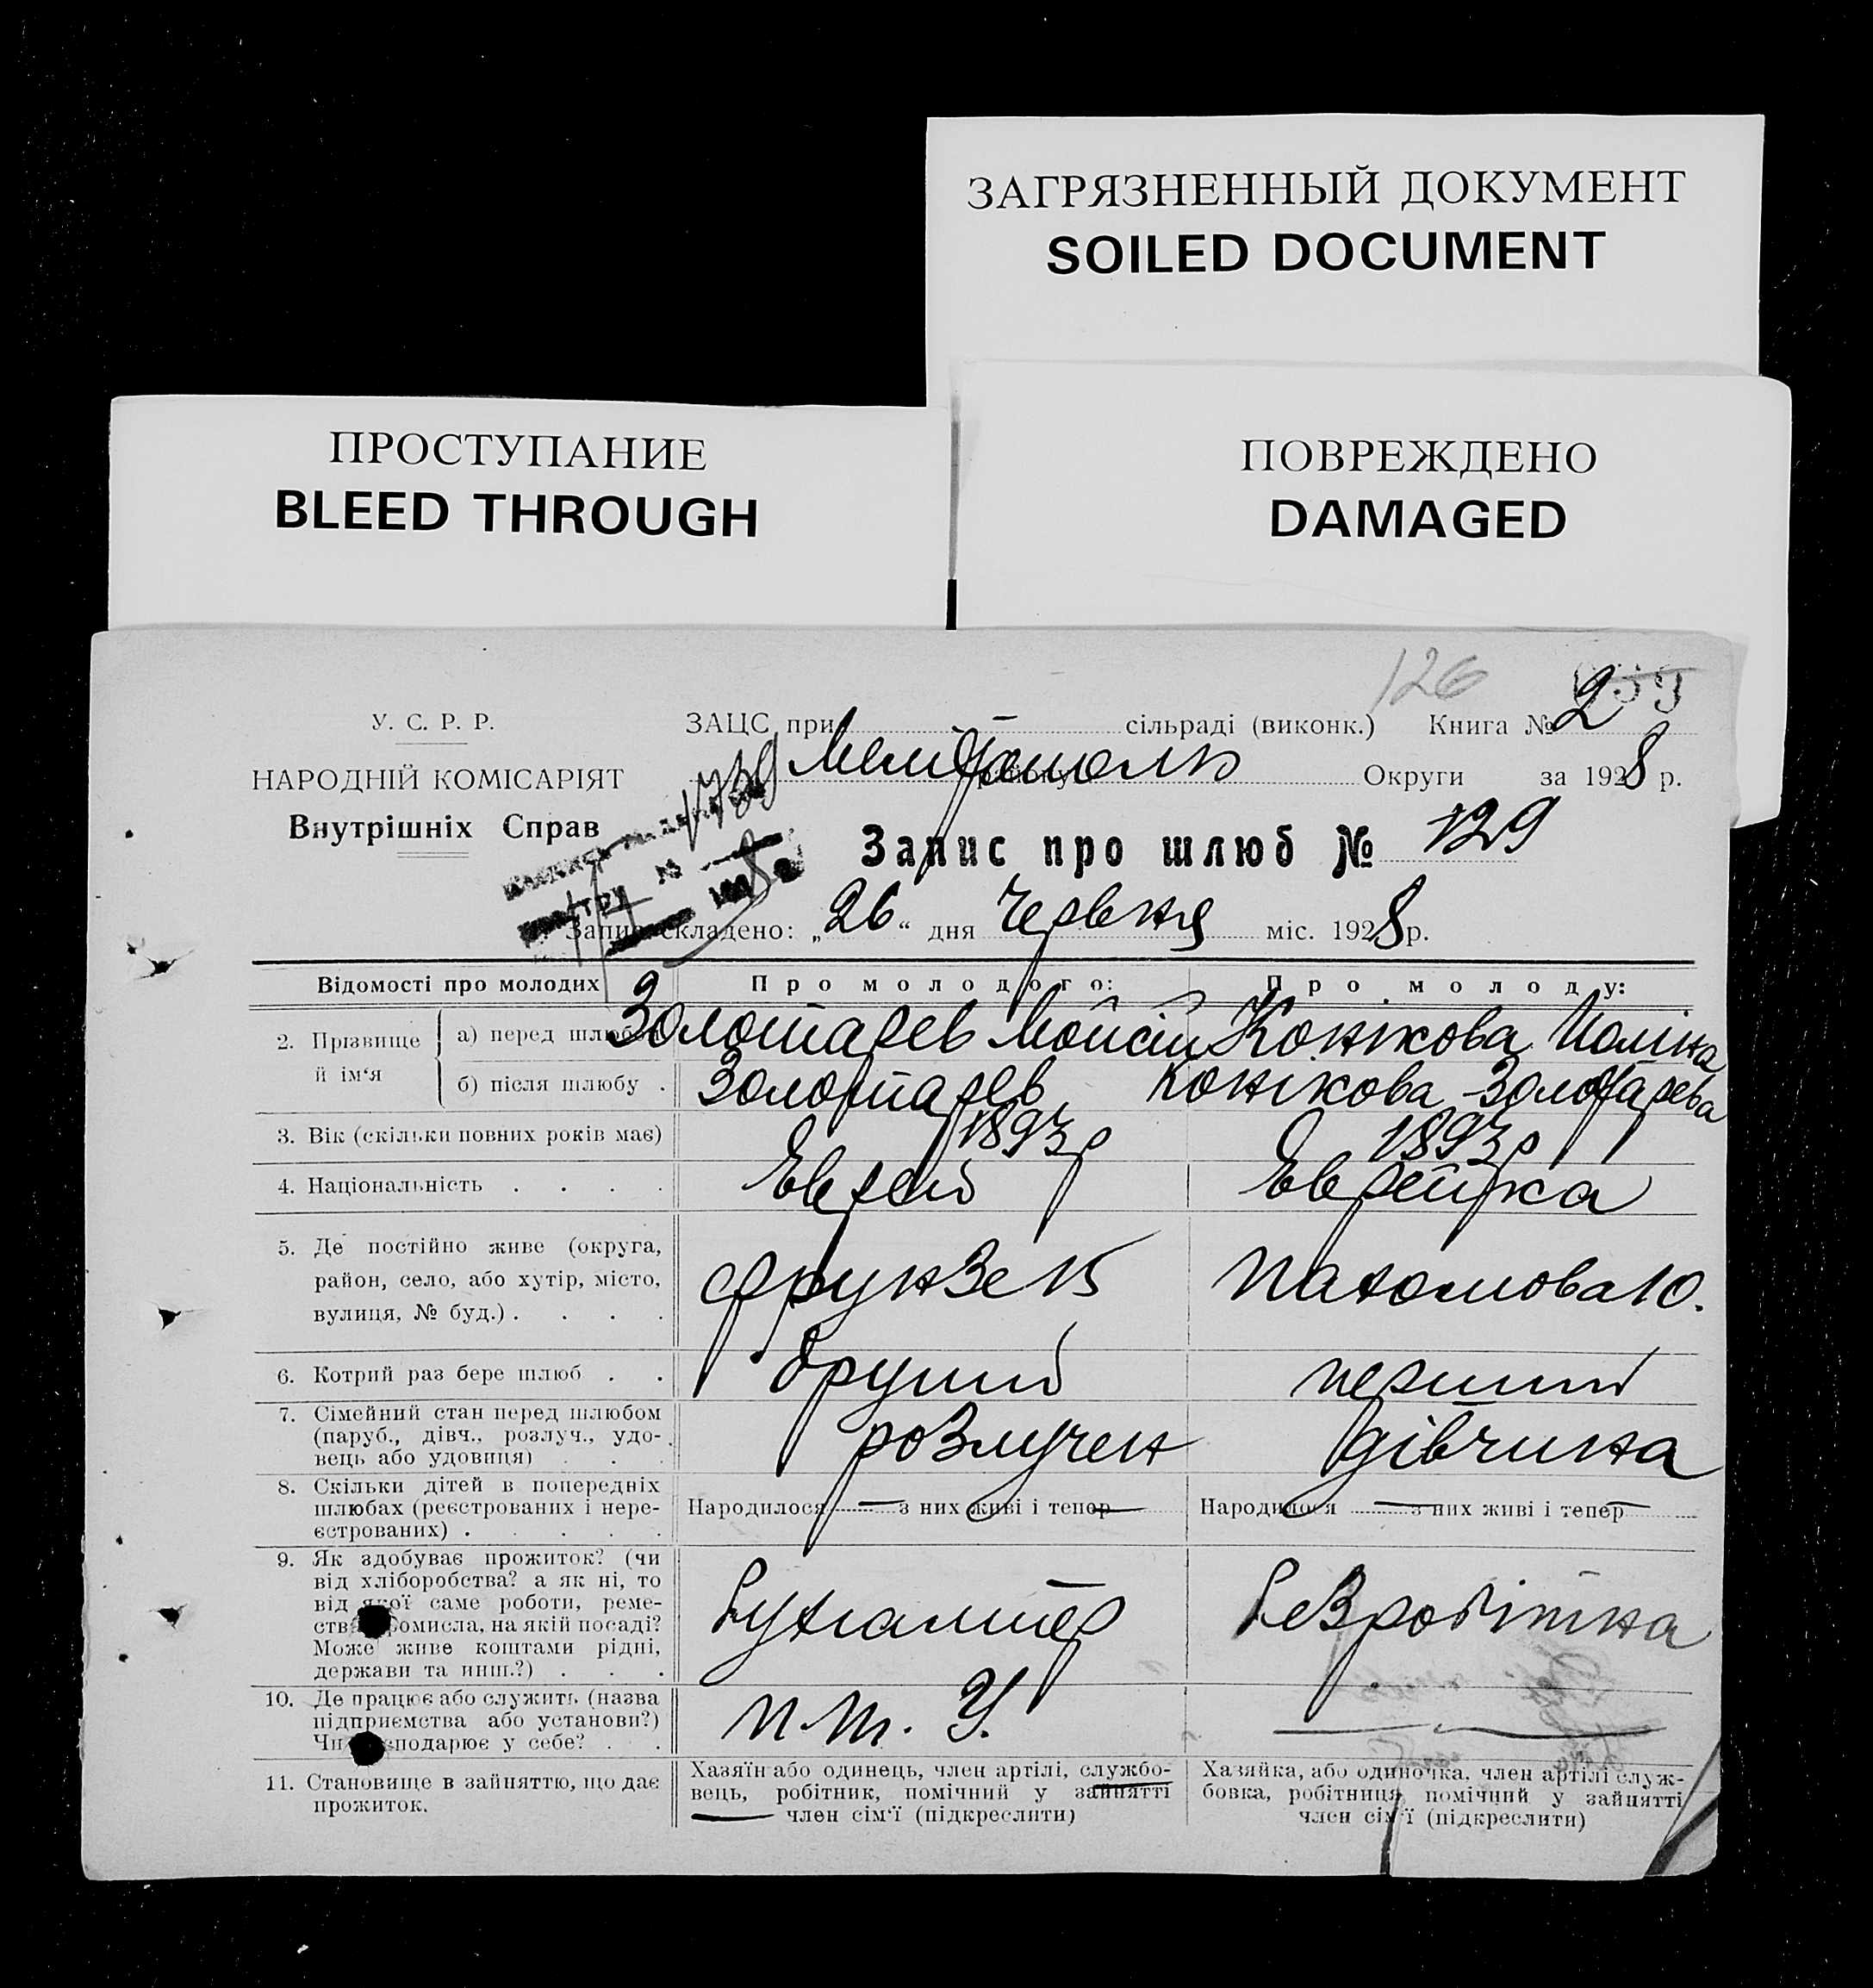 ЗАГРЯЗНЕННЫЙ ДОКУМЕНТ
SOILED DOCUMENT
ПРОСТУПАНИЕ
BLEED THROUGH
ПОВРЕЖДЕНО
DAMAGED
126
У. С. Р. Р.
НАРОДНІЙ КОМІСАРІЯТ
Внутрішніх Справ
ЗАЦС при сільраді (виконк.) Книга № 2
Округи за 1928 р.
1739
Запис про шлюб № 129
Запис складено: „26“ дня Червня міс. 1928 р.
Відомості про молодих
Про молодого:
Про молоду:
2. Прізвище й ім‘я
а) перед шлюбом
Золотарев Мойсій
Конікова Поліна
б) після шлюбу .
Золотарев
Конікова-Золотарева
3. Вік (скільки повних років має)
1893 р
1893 р
4. Національність . . . .
Еврей
Еврейка
5. Де постійно живе (округа,
район, село, або хутір, місто,
вулиця, № буд.) . . . .
Фрунзе 15
10.
6. Котрий раз бере шлюб . .
другий
перший
7. Сімейний стан перед шлюбом
(паруб., дівч., розлуч., удо-
вець або удовиця) . . .
розлучен
дівчина
8. Скільки дітей в попередніх
шлюбах (реєстрованих і нере-
єстрованих) . . . . .
Народилося — з них живі і тепер —
Народилося — з них живі і тепер —
9. Як здобуває прожиток? (чи
від хліборобства? а як ні, то
від якої саме роботи, реме-
ств омисла, на якій посаді?
Може живе коштами рідні,
держави та инш.?) . . .
Бухгалтер
безробітна
10. Де працює або служить (назва
підприємства або установи?)
Чи сподарює у себе? . .
П. Т. У.
—
11. Становище в зайняттю, що дає
прожиток.
Хазяїн або одинець, член артілі, службо-
вець, робітник, помічний у зайнятті
член сім‘ї (підкреслити)
Хазяйка, або одиночка, член артілі служ-
бовка, робітниця, помічний у зайнятті
член сім‘ї (підкреслити)